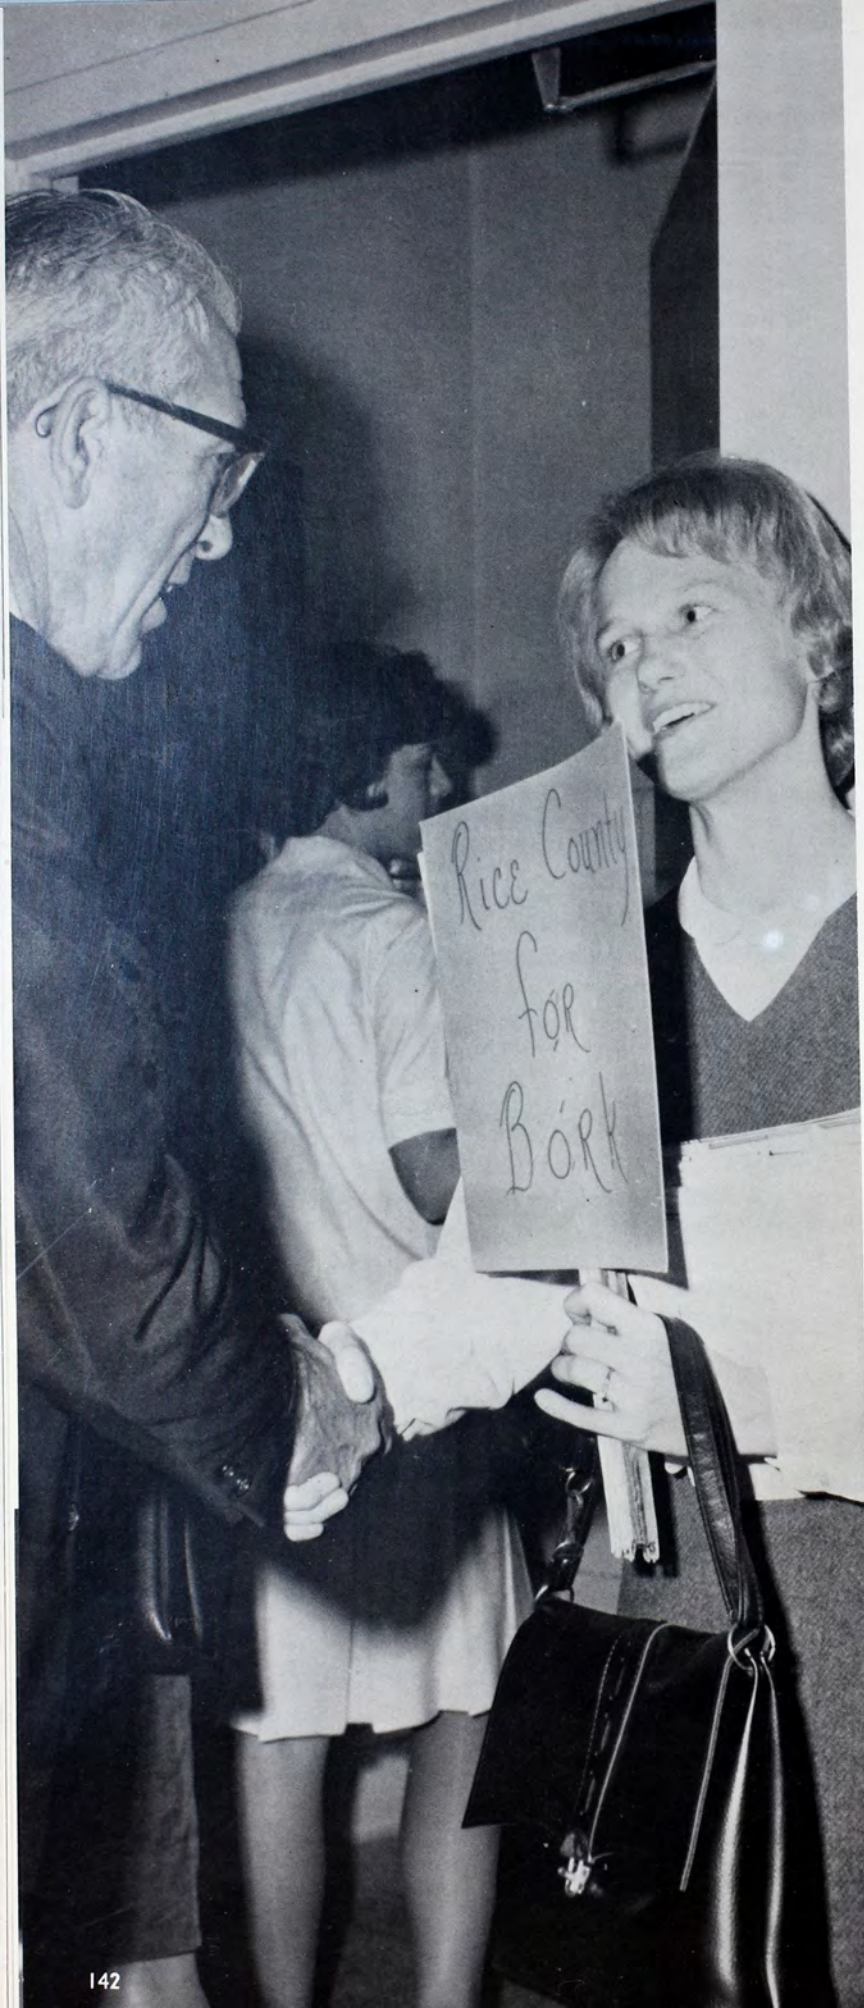 Rice County
for
Bork
142